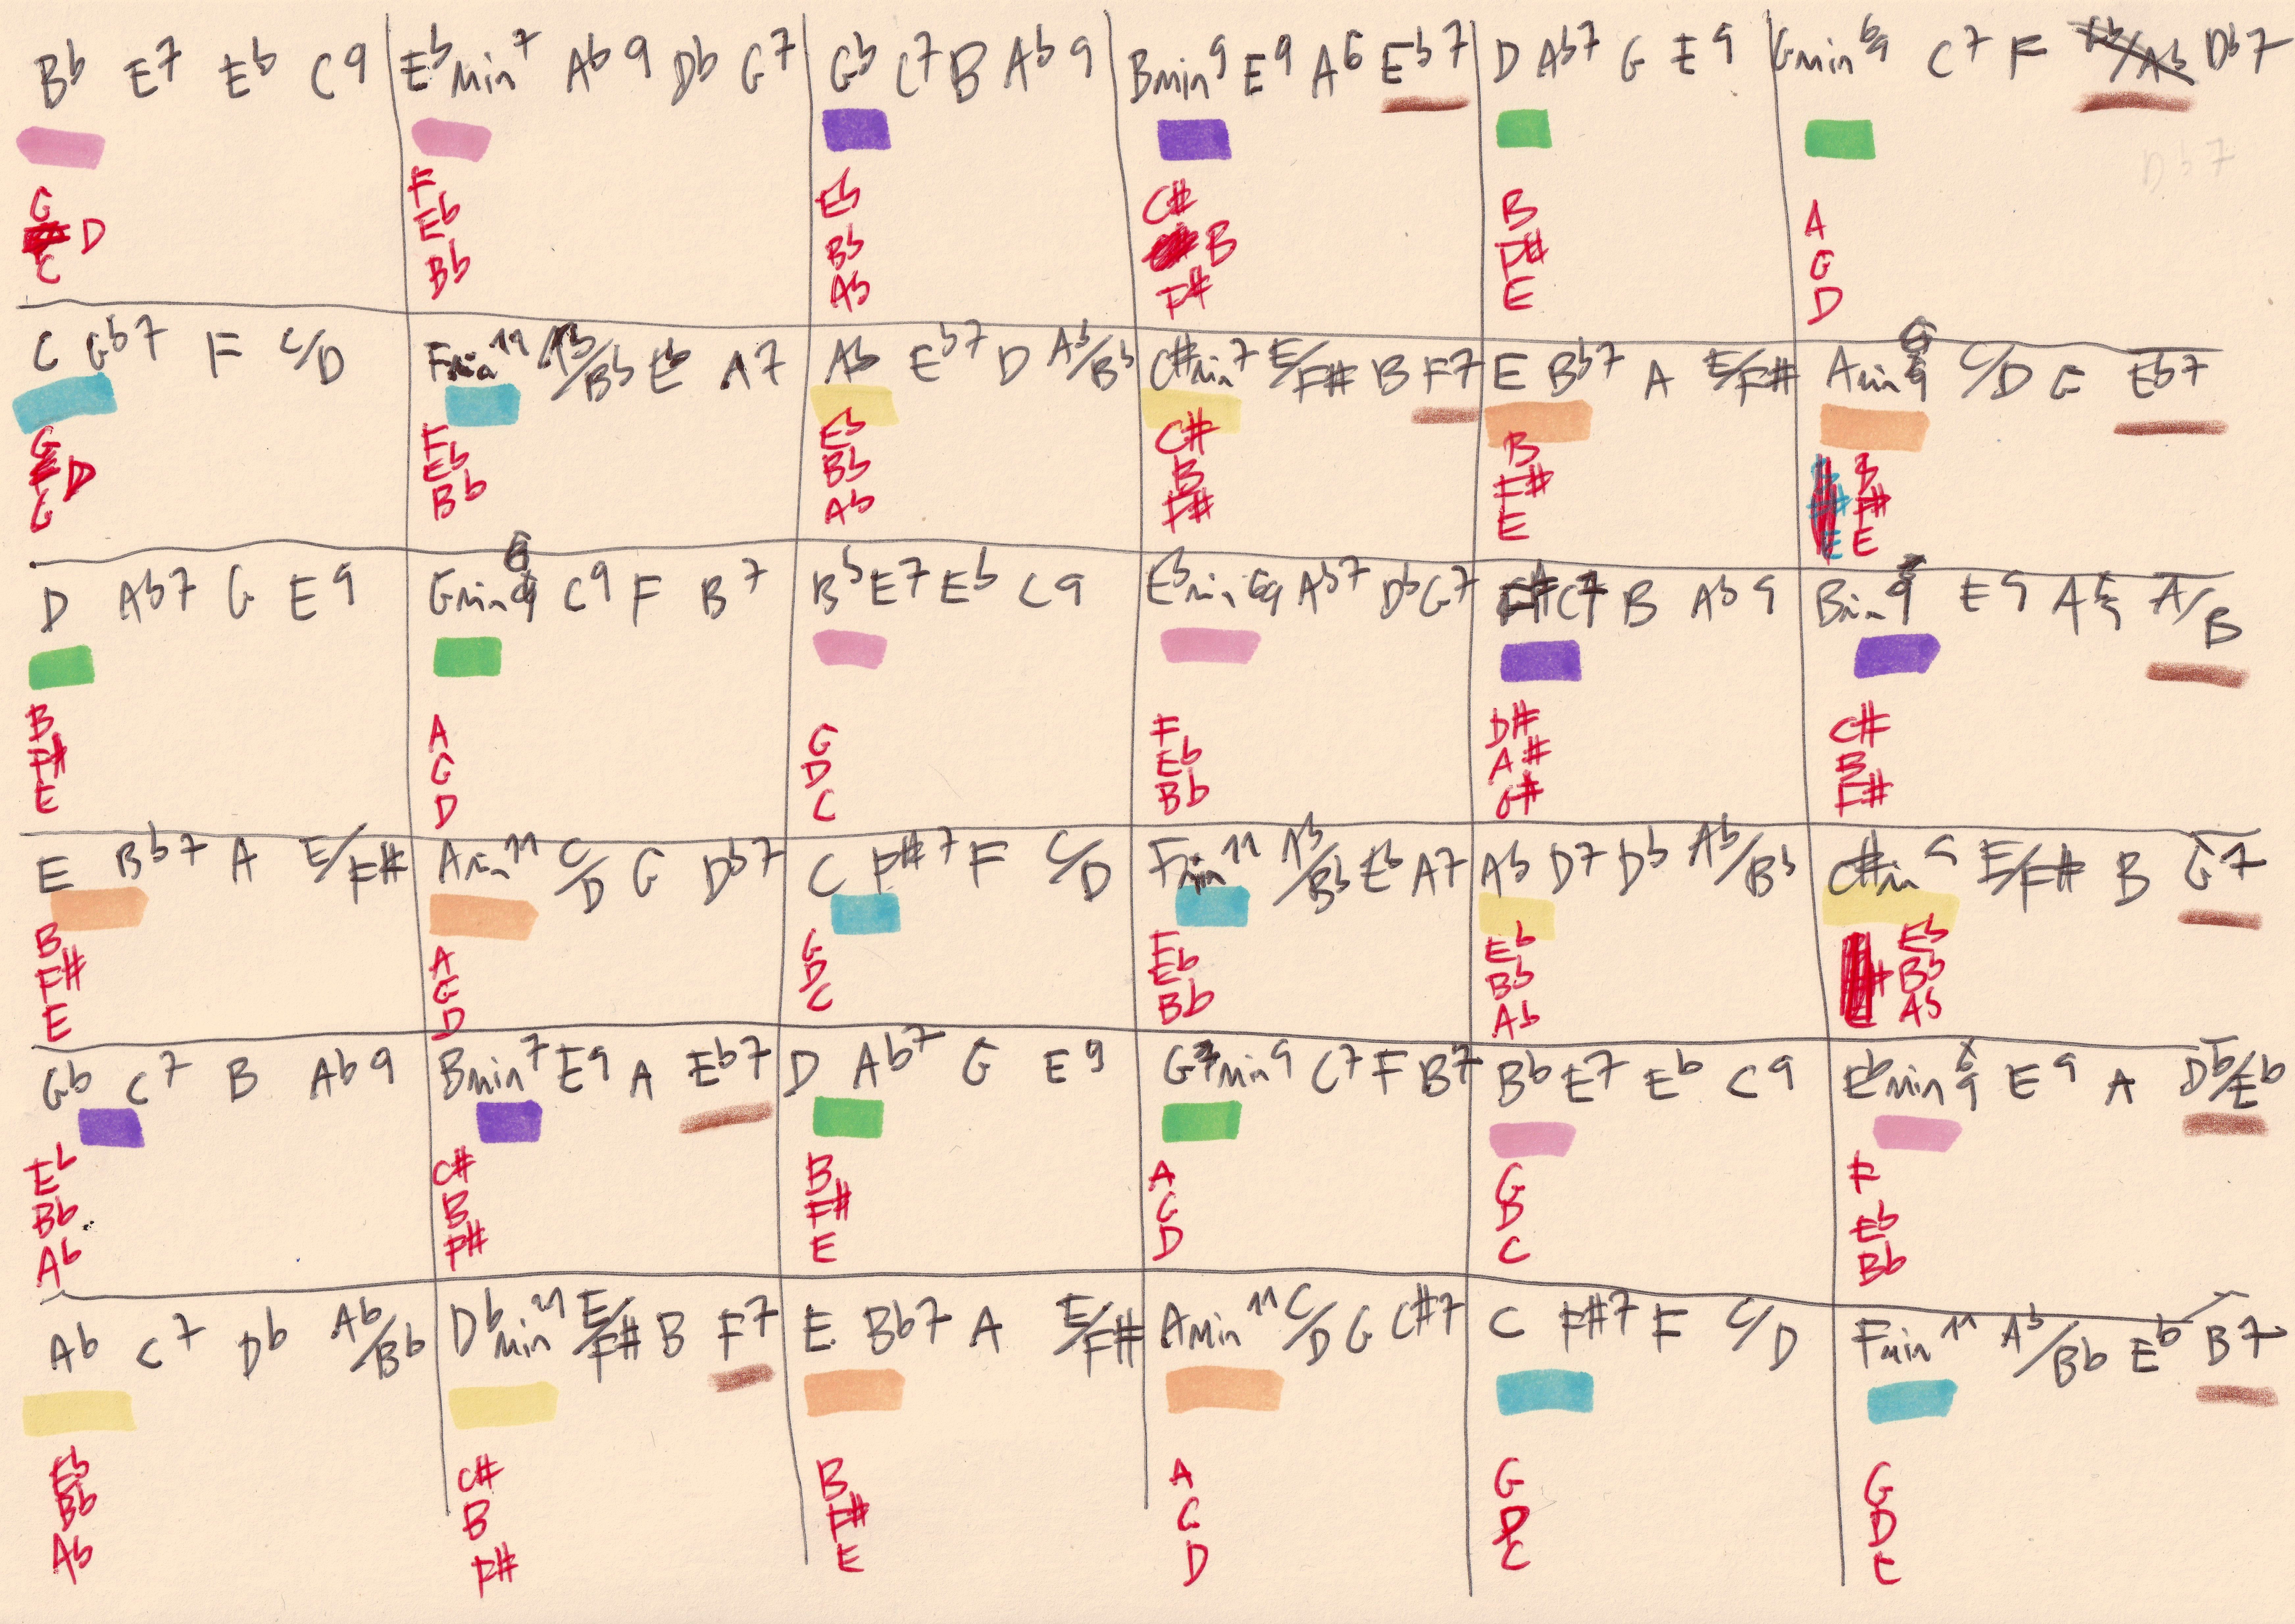 Bb E7 Eb C9 Ebmin7 Ab9 Db G7 Gb C7 B Ab9 Bmin9 E9 A6 Eb7 D Ab7 G E9 Gmin6/9 C7 F Db7
Db7
G F Eb C# B A
D Eb Bb B F# G
C Bb Ab F# E D
C Gb7 F C/D Fmin11 Ab/Bb Eb A7 Ab Eb7 D Ab/Bb C#min7 E/F# B F7 E Bb7 A E/F# Amin C/D G Eb7
G F Eb C# B B
D Eb Bb B F# F#
G Bb Ab F# E E
D Ab7 G E9 Gmin C9 F B7 Bb E7 Eb C9 Ebmin6/9 Ab7 Db G7 C7 B Ab9 Bmin E9 A A/B
B A G F D# C#
F# G D Eb A# B
E D C Bb G# F#
E Bb7 A E/F# Amin11 C/D G Db7 C F#7 F C/D Fmin11 Ab/Bb Eb A7 Ab D7 Db Ab/Bb C#m E/F# B G7
B A G F Eb Eb
F# G D Eb Bb Bb
E D C Bb Ab Ab
Gb C7 B Ab9 Bmin7 E9 A Eb7 D Ab7 G E9 Gmin9 C7 F B7 Bb E7 Eb C9 Ebmin6/9 E9 A Db/Eb
Eb C# B A G F
Bb B F# G D Eb
Ab F# E D C Bb
Ab C7 Db Ab/Bb Dbmin11 E/F# B F7 E Bb7 A E/F# Amin11 C/D G C#7 C F#7 F C/D Fmin11 Ab/Bb Eb B7
Eb C# B A G G
Bb B F# G D D
Ab F# E D C C